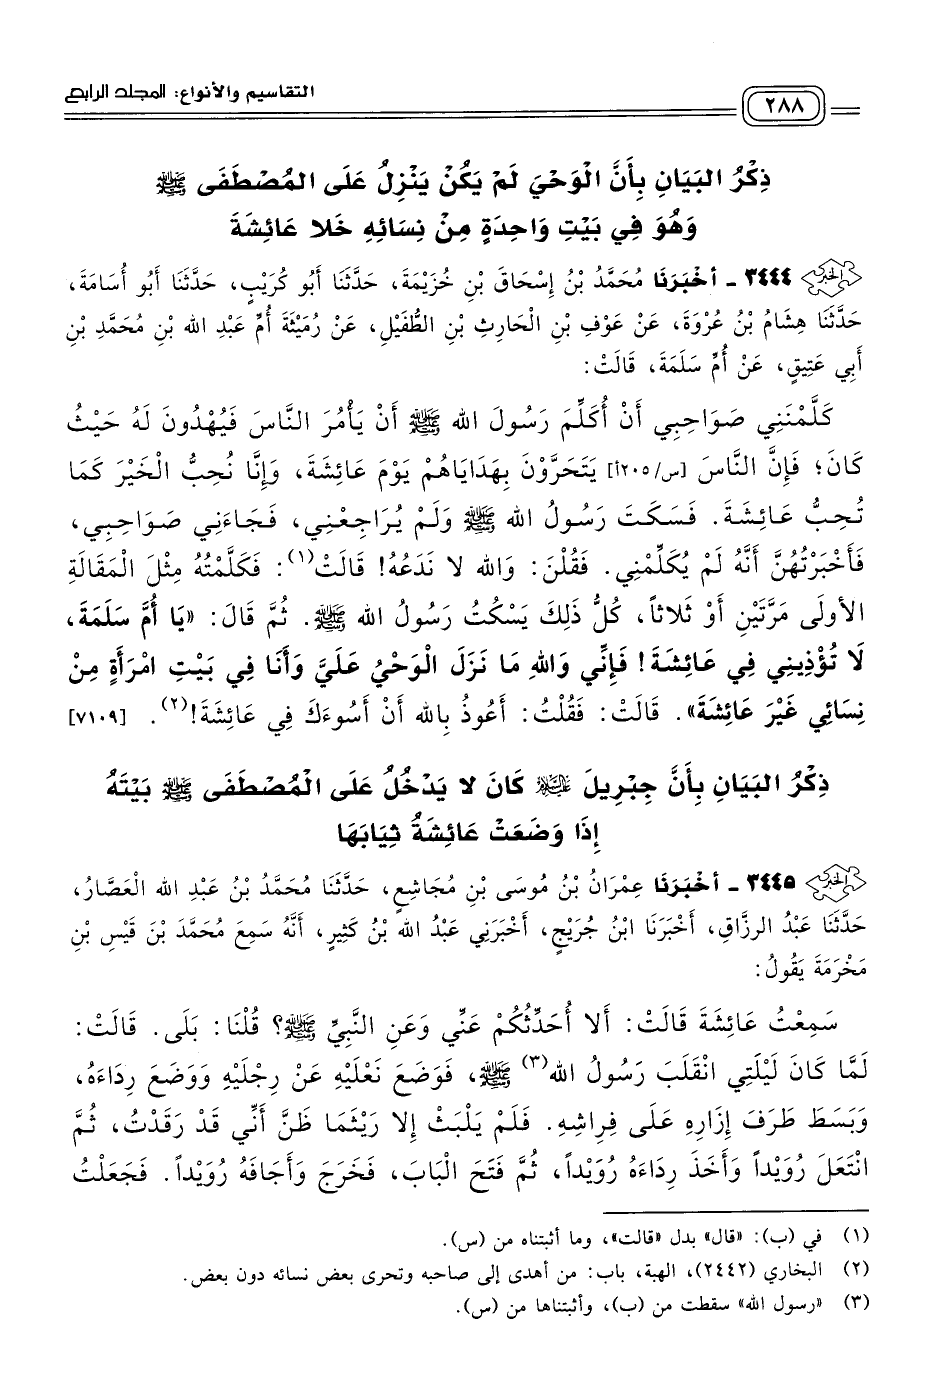 ٢٨٨ التقاسيم والأنواع: المجلد الرابع
ذِكْرُ البَيَانِ بِأَنَّ الْوَحْيَ لَمْ يَكُنْ يَنْزِلُ عَلَى الْمُصْطَفَى ﷺ
وَهُوَ فِي بَيْتِ وَاحِدَةٍ مِنْ نِسَائِهِ خَلا عَائِشَةَ
الخبر ٣٤٤٤ ـ أخْبَرَنَا مُحَمَّدُ بْنُ إِسْحَاقَ بْنِ خُزَيْمَةَ، حَدَّثَنَا أَبُو كُرَيْبٍ، حَدَّثَنَا أَبو أُسَامَةَ،
حَدَّثَنَا هِشَامُ بْنُ عُرْوَةَ، عَنْ عَوْفِ بْنِ الْحَارِثِ بْنِ الطُّفَيْلِ، عَنْ رُمَيْثَةَ أُمِّ عَبْدِ الله بْنِ مُحَمَّدِ بْنِ
أَبِي عَتِيقٍ، عَنْ أُمِّ سَلَمَةَ، قَالَتْ:
كَلَّمْنَنِي صَوَاحِبِي أَنْ أُكَلِّمَ رَسُولَ الله ﷺ أَنْ يَأْمُرَ النَّاسَ فَيُهْدُونَ لَهُ حَيْثُ
كَانَ؛ فَإِنَّ النَّاسَ [س/٢٠٥أ] يَتَحَرَّوْنَ بِهَدَايَاهُمْ يَوْمَ عَائِشَةَ، وَإِنَّا نُحِبُّ الْخَيْرَ كَمَا
تُحِبُّ عَائِشَةَ. فَسَكَتَ رَسُولُ الله ﷺ وَلَمْ يُرَاجِعْنِي، فَجَاءَنِي صَوَاحِبِي،
فَأَخْبَرْتُهُنَّ أَنَّهُ لَمْ يُكَلِّمْنِي. فَقُلْنَ: وَالله لا نَدَعُهُ! قَالَتْ(١): فَكَلَّمْتُهُ مِثْلَ الْمَقَالَةِ
الأولَى مَرَّتَيْنِ أَوْ ثَلاثاً، كُلُّ ذَلِكَ يَسْكُتُ رَسُولُ الله ﷺ. ثُمَّ قَالَ: «يَا أُمَّ سَلَمَةَ،
لَا تُؤْذِينِي فِي عَائِشَةَ! فَإِنِّي وَاللهِ مَا نَزَلَ الْوَحْيُ عَلَيَّ وَأَنَا فِي بَيْتِ امْرَأَةٍ مِنْ
نِسَائِي غَيْرَ عَائِشَةَ». قَالَتْ: فَقُلْتُ: أَعُوذُ بِالله أَنْ أَسُوءَكَ فِي عَائِشَةَ!(٢). [٧١٠٩]
ذِكْرُ البَيَانِ بِأَنَّ جِبْرِيلَ عليه السلام كَانَ لا يَدْخُلُ عَلَى الْمُصْطَفَى ﷺ بَيْتَهُ
إِذَا وَضَعَتْ عَائِشَةُ ثِيَابَهَا
الخبر ٣٤٤٥ ـ أخْبَرَنَا عِمْرَانُ بْنُ مُوسَى بْنِ مُجَاشِعٍ، حَدَّثَنَا مُحَمَّدُ بْنُ عَبْدِ الله الْعَصَّارُ،
حَدَّثَنَا عَبْدُ الرزَّاقِ، أَخْبَرَنَا ابْنُ جُرَيْجٍ، أَخْبَرَنِي عَبْدُ الله بْنُ كَثِيرٍ، أَنَّهُ سَمِعَ مُحَمَّدَ بْنَ قَيْسِ بْنِ
مَخْرَمَةَ يَقُولُ:
سَمِعْتُ عَائِشَةَ قَالَتْ: أَلا أُحَدِّثُكُمْ عَنِّي وَعَنِ النَّبِيِّ ﷺ؟ قُلْنَا: بَلَى. قَالَتْ:
لَمَّا كَانَ لَيْلَتِي انْقَلَبَ رَسُولُ الله(٣) ﷺ، فَوَضَعَ نَعْلَيْهِ عَنْ رِجْلَيْهِ وَوَضَعَ رِدَاءَهُ،
وَبَسَطَ طَرَفَ إِزَارِهِ عَلَى فِرَاشِهِ. فَلَمْ يَلْبَثْ إِلا رَيْثَمَا ظَنَّ أَنِّي قَدْ رَقَدْتُ، ثُمَّ
انْتَعَلَ رُوَيْداً وَأَخَذَ رِدَاءَهُ رُوَيْداً، ثُمَّ فَتَحَ الْبَابَ، فَخَرَجَ وَأَجَافَهُ رُوَيْداً. فَجَعَلْتُ
(١) في (ب): «قال» بدل «قالت»، وما أثبتناه من (س).
(٢) البخاري (٢٤٤٢)، الهبة، باب: من أهدى إلى صاحبه وتحرى بعض نسائه دون بعض.
(٣) «رسول الله» سقطت من (ب)، وأثبتناها من (س).